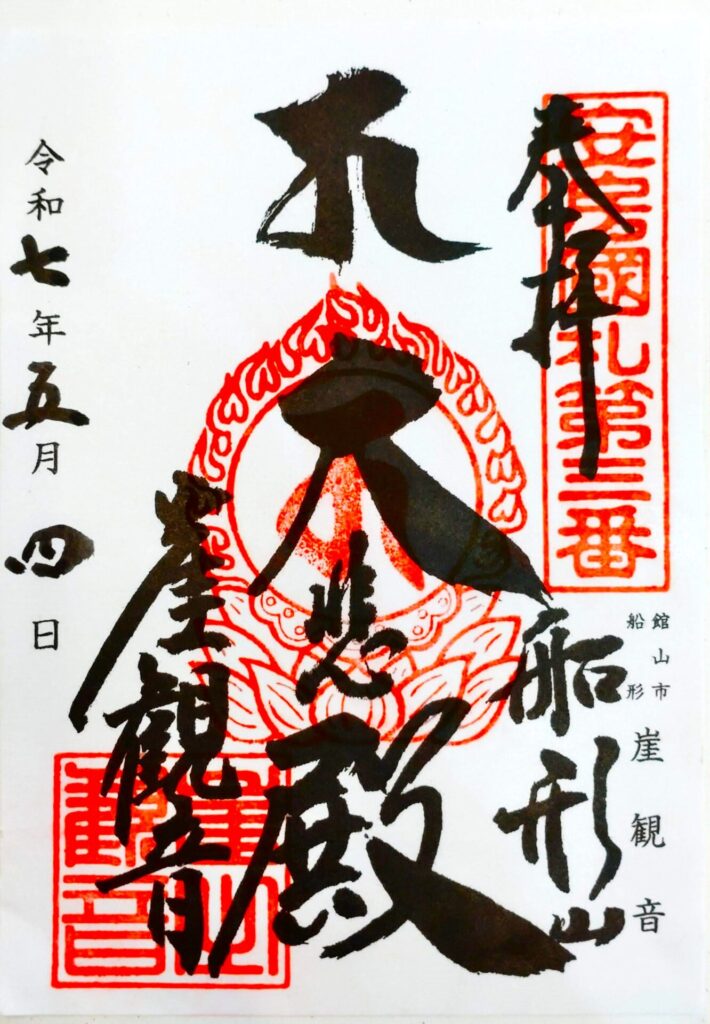 奉拝
安房國札第三番
館山市
船形
崖観音
船形山
大悲殿
崖觀音
崖山
観音
令和七年五月四日